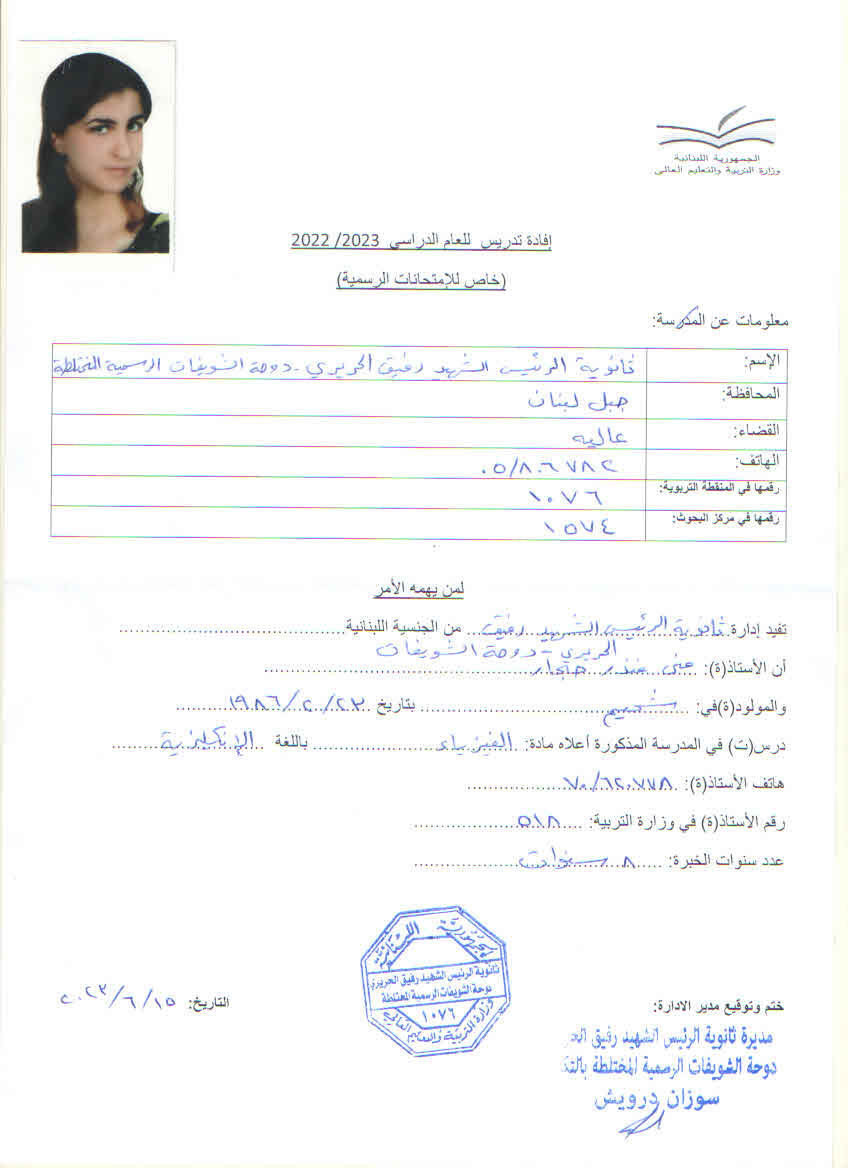 الجمهورية اللبنانية
وزارة التربية والتعليم العالي
إفادة تدريس للعام الدراسي 2023/ 2022
(خاص للإمتحانات الرسمية)
معلومات عن المدرسة:
الإسم: ثانوية الرئيس الشهيد رفيق الحريري - دوحة الشويفات الرسمية المختلطة
المحافظة: جبل لبنان
القضاء: عاليه
الهاتف: ٠٥/٨٠٦٧٨٢
رقمها في المنقطة التربوية: ١٠٧٦
رقمها في مركز البحوث: ١٥٧٤
لمن يهمه الأمر
تفيد إدارة ثانوية الرئيس الشهيد رفيق من الجنسية اللبنانية
الحريري - دوحة الشويفات
أن الأستاذ(ة): منى منذر حجار
والمولود(ة)في: شحيم بتاريخ ١٩٨٦/٢/٢٣
درس(ت) في المدرسة المذكورة أعلاه مادة: الفيزياء باللغة الإنكليزية
هاتف الأستاذ(ة): ٧٠/٦٢٠٧٧٨
رقم الأستاذ(ة) في وزارة التربية: ٥١٨
عدد سنوات الخبرة: ٨ سنوات
الجمهورية اللبنانية
ثانوية الرئيس الشهيد رفيق الحريري
دوحة الشويفات الرسمية المختلطة
١٠٧٦
وزارة التربية والتعليم العالي
التاريخ: ٢٠٢٣/٦/١٥
ختم وتوقيع مدير الادارة:
مديرة ثانوية الرئيس الشهيد رفيق الحر
دوحة الشويفات الرسمية المختلطة بالتك
سوزان درويش